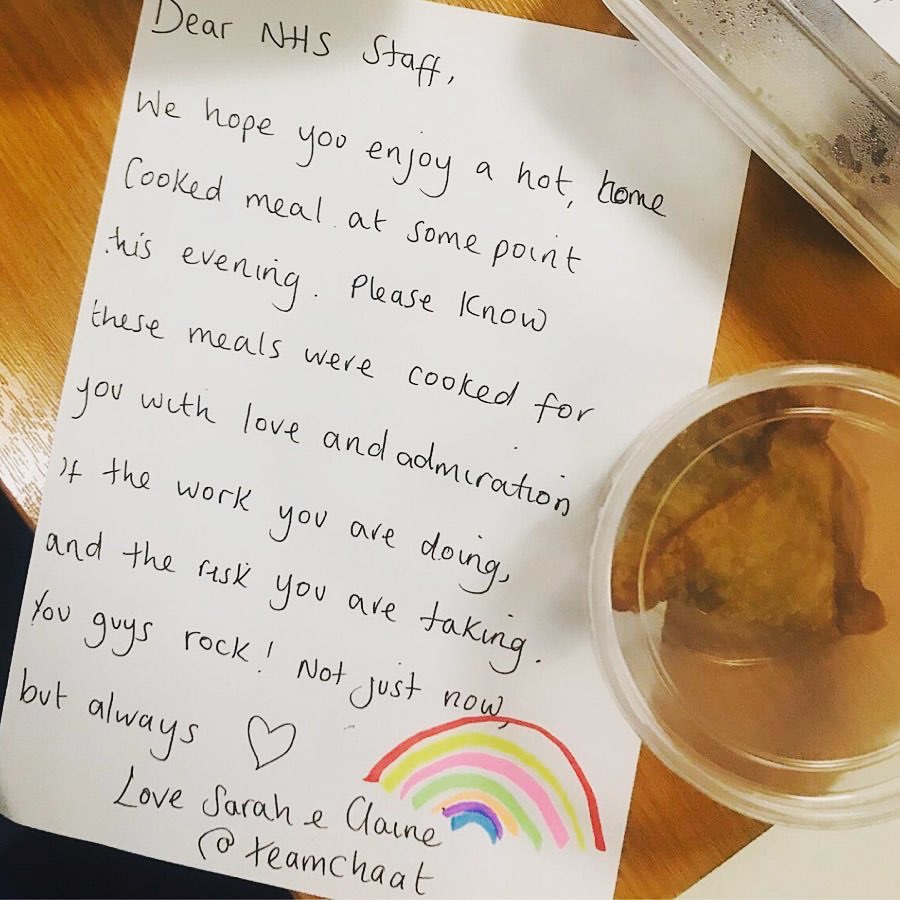 Dear NHS Staff,
We hope you enjoy a hot, home
Cooked meal at some point
this evening. Please Know
these meals were cooked for
you with love and admiration
of the work you are doing,
and the risk you are taking.
You guys rock! Not just now,
but always ♡
Love Sarah e Claire
@teamchaat